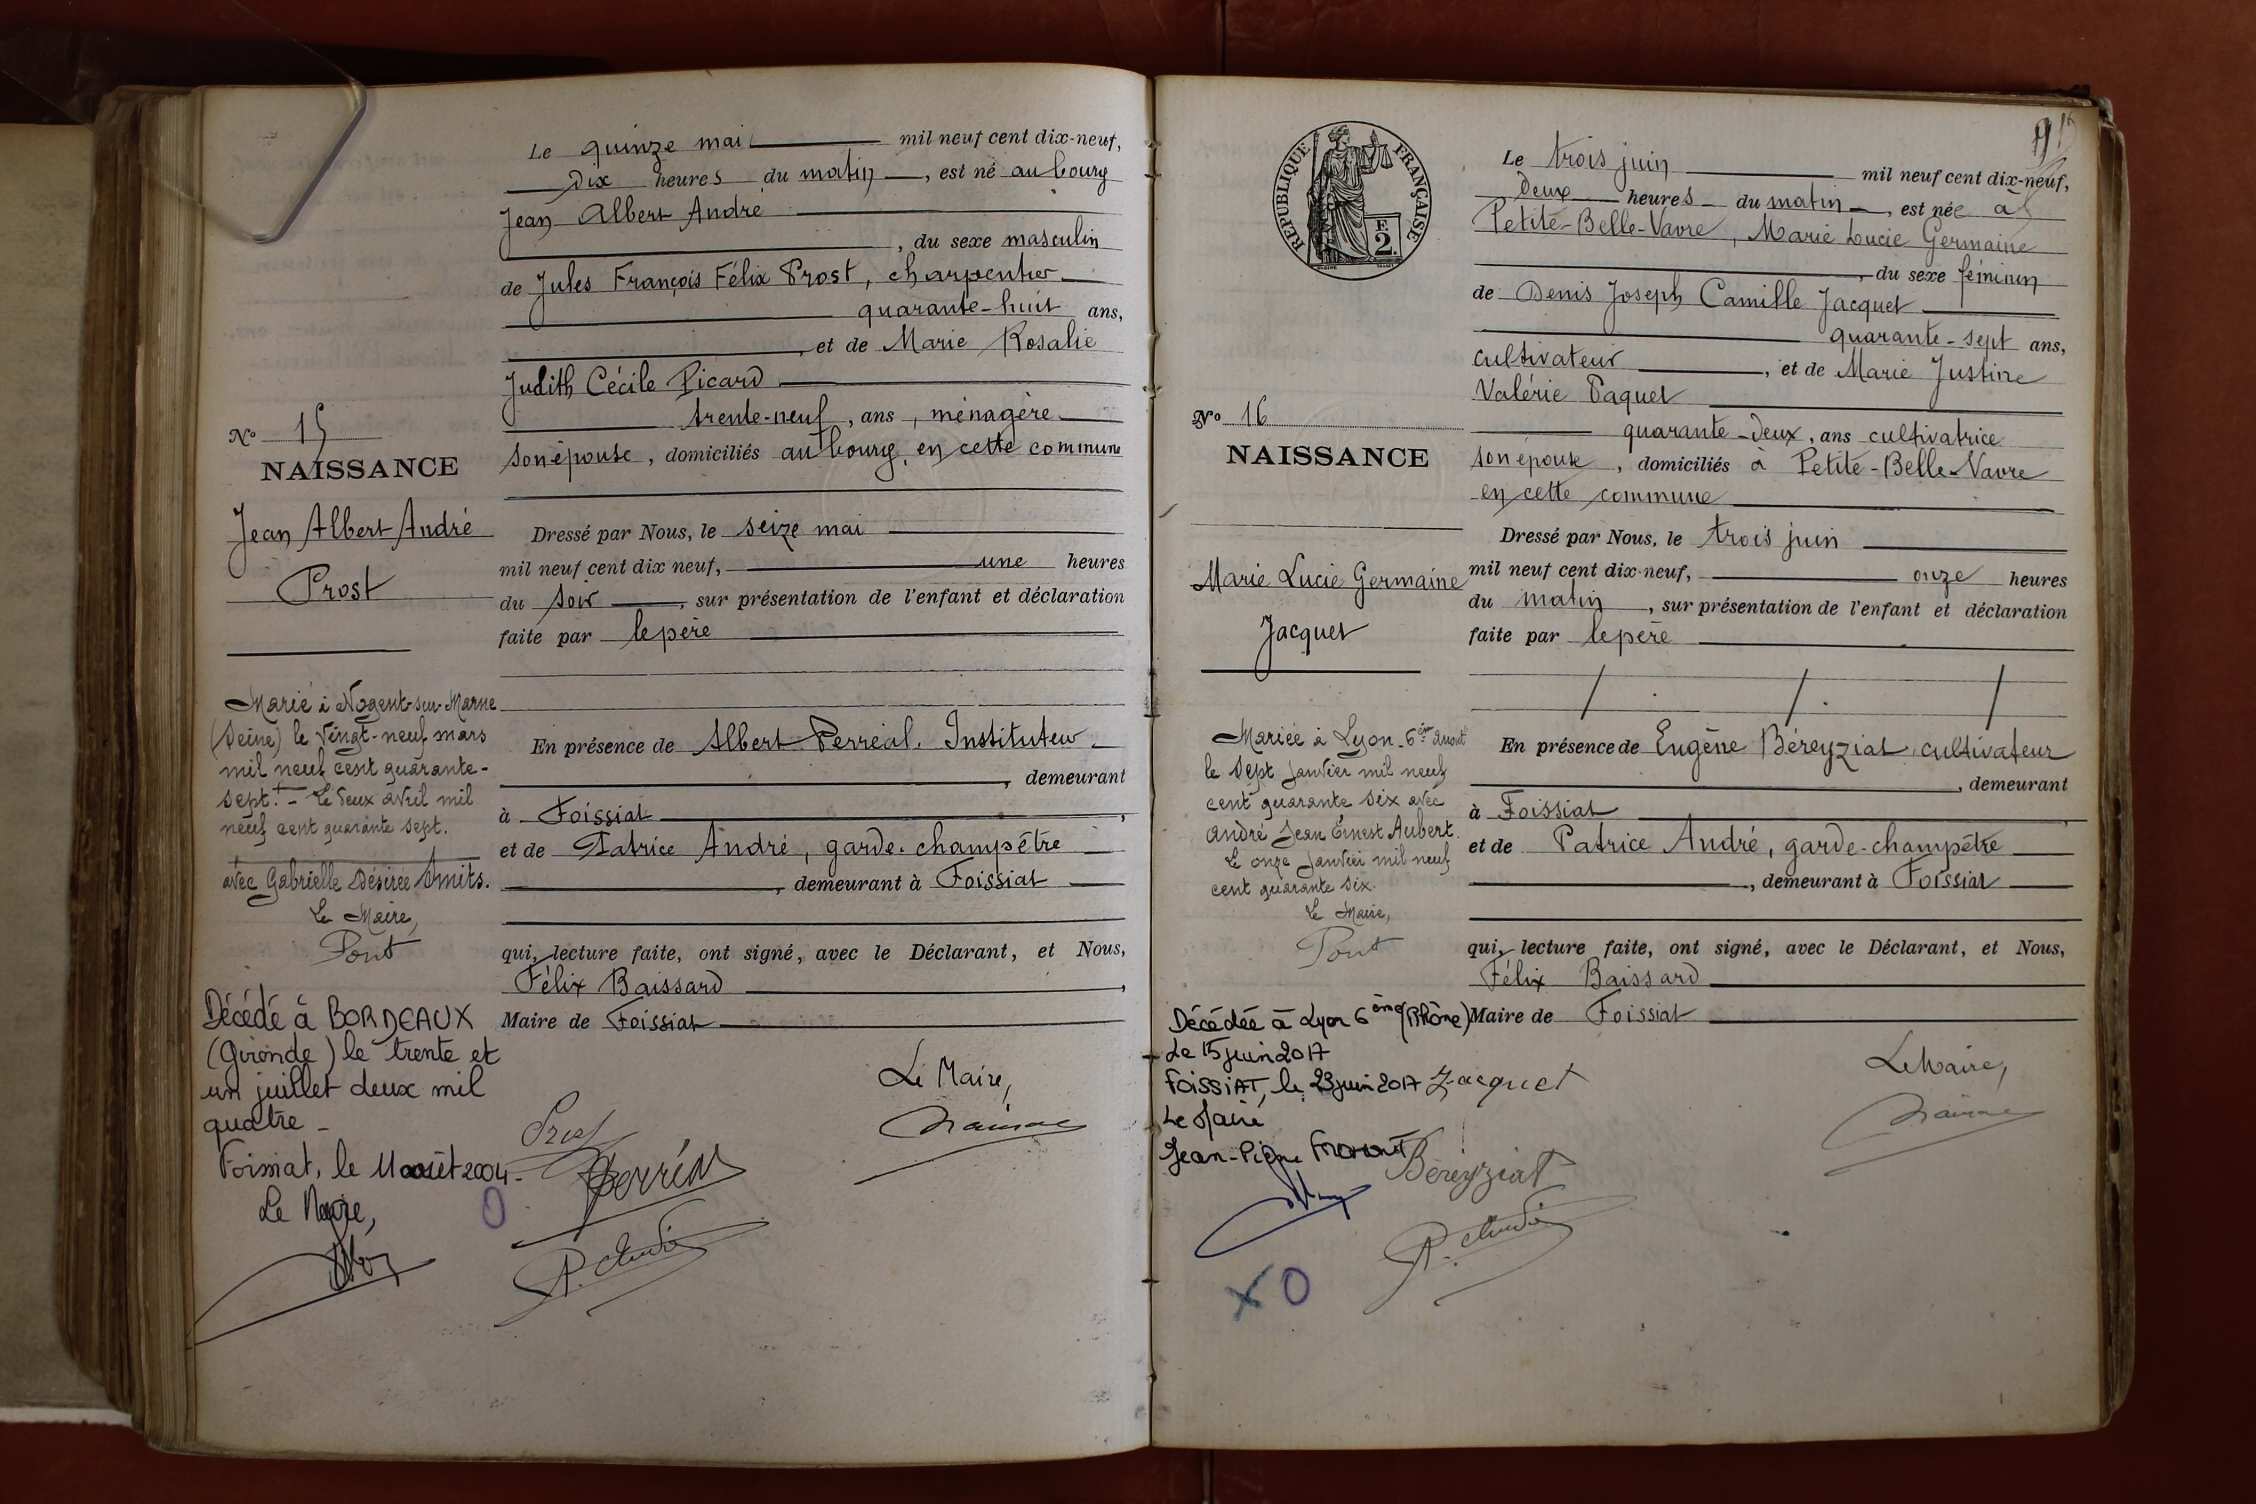 Le quinze mai mil neuf cent dix-neuf,
Dix heures du matin, est né au bourg
Jean Albert André
, du sexe masculin
de Jules François Félix Prost, charpentier
quarante-huit ans,
, et de Marie Rosalie
Judith Cécile Picard
trente-neuf, ans, ménagère
son épouse, domiciliés au bourg, en cette commune
No 15
NAISSANCE
Jean Albert André
Prost
Dressé par Nous, le seize mai
mil neuf cent dix neuf, une heures
du soir, sur présentation de l'enfant et déclaration
faite par le père
Marié à Nogent-sur-Marne
(Seine) le vingt-neuf mars
mil neuf cent quarante-
sept. - Le deux avril mil
neuf cent quarante sept.
avec Gabrielle Désirée Smits.
Le Maire,
Pont
En présence de Albert Perréal, Instituteur
, demeurant
à Foissiat,
et de Patrice André, garde-champêtre
, demeurant à Foissiat
qui, lecture faite, ont signé, avec le Déclarant, et Nous,
Félix Baissard,
Maire de Foissiat
Décédé à BORDEAUX
(Gironde) le trente et
un juillet deux mil
quatre -
Foissiat, le 11 août 2004-
Le Maire,
Le Maire,
Prost
P. André
RÉPUBLIQUE FRANÇAISE
E
2
Le trois juin mil neuf cent dix-neuf,
Deux heures du matin, est née à
Petite-Belle-Vavre, Marie Lucie Germaine
, du sexe féminin
de Denis Joseph Camille Jacquet
quarante-sept ans,
cultivateur, et de Marie Justine
Valérie Paquet
quarante-deux, ans cultivatrice
son épouse, domiciliés à Petite-Belle-Vavre
en cette commune
No 16
NAISSANCE
Marie Lucie Germaine
Jacquet
Dressé par Nous, le trois juin
mil neuf cent dix-neuf, onze heures
du matin, sur présentation de l'enfant et déclaration
faite par le père
Mariée à Lyon-6ème arront
le sept janvier mil neuf
cent quarante six avec
André Jean Ernest Aubert.
Le onze janvier mil neuf
cent quarante six.
Le Maire,
Pont
En présence de Eugène Béreyziat, cultivateur
, demeurant
à Foissiat
et de Patrice André, garde-champêtre
, demeurant à Foissiat
qui, lecture faite, ont signé, avec le Déclarant, et Nous,
Félix Baissard
Maire de Foissiat
Décédée à Lyon 6ème (Rhône)
Le 15 juin 2017
FOISSIAT, le 23 juin 2017
Le Maire
Jean-Pierre Fromont
Le Maire,
Jacquet
Béreyziat
P. André
X O